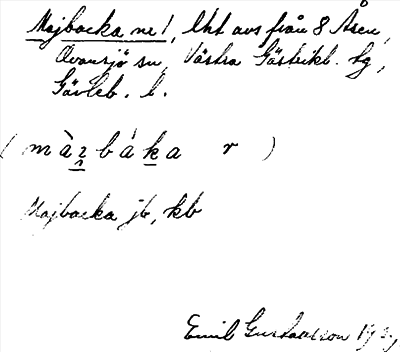 Majbacka nr 1, Lht avs från 8 Åsen,
Ovansjö sn, Västra Gästrikl. tg,
Gävleb. l.
( màrbáka r )
Majbacka jb, kb
Emil Gustavsson